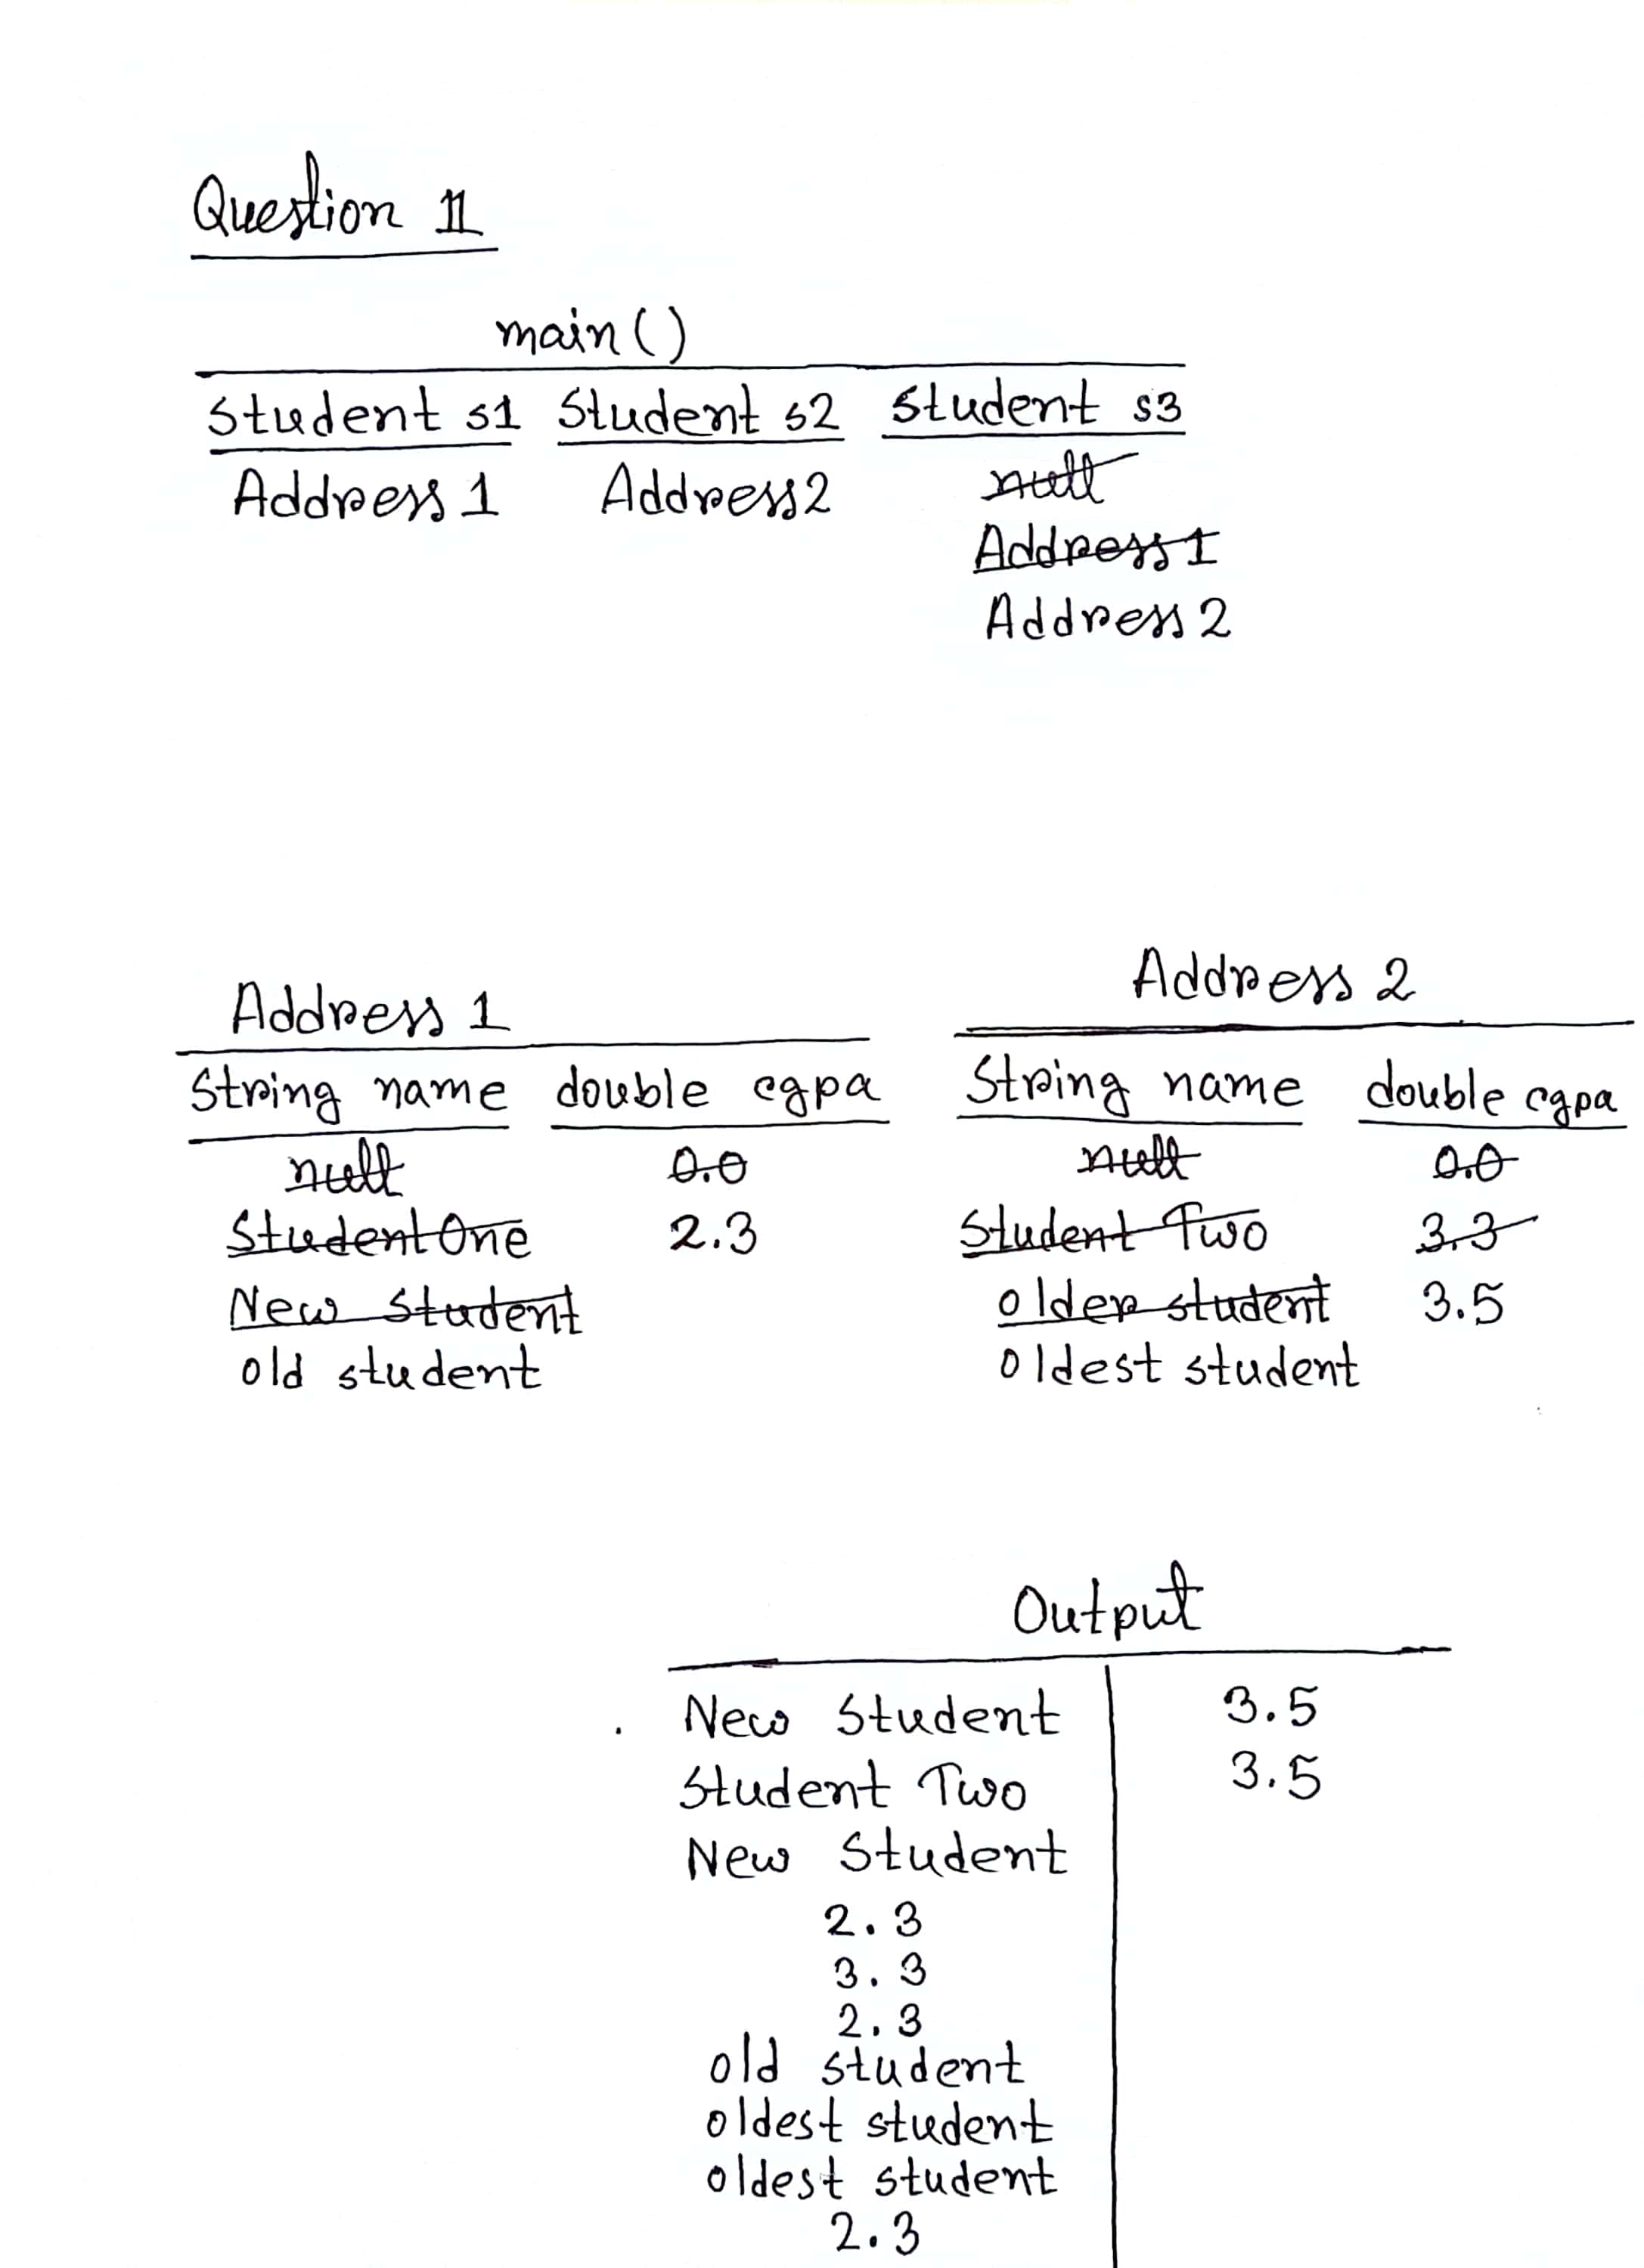 Question 11
main()
Student s1 Student s2 Student s3
Address 1 Address2 null
Address 1
Address 2
Address 1
String name double cgpa
null 0.0
Student One 2.3
New Student
old student
Address 2
String name double cgpa
null 0.0
Student Two 3.3
older student 3.5
oldest student
Output
New Student 3.5
Student Two 3.5
New Student
2.3
3.3
2.3
old student
oldest student
oldest student
2.3